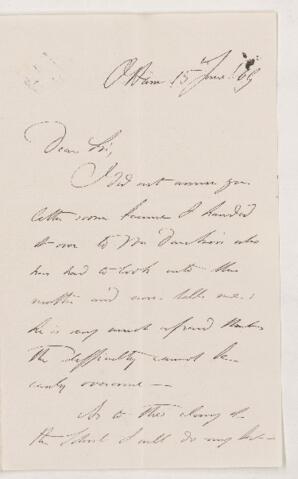 Ottawa 15 June /69
Dear Sir,
I did not answer your
letter sooner because I handed
it over to Mr who
has had to look into the
matter and now tells me
he is very much afraid that
the difficulty cannot be
easily overcome —
As to the
the I will do my best —